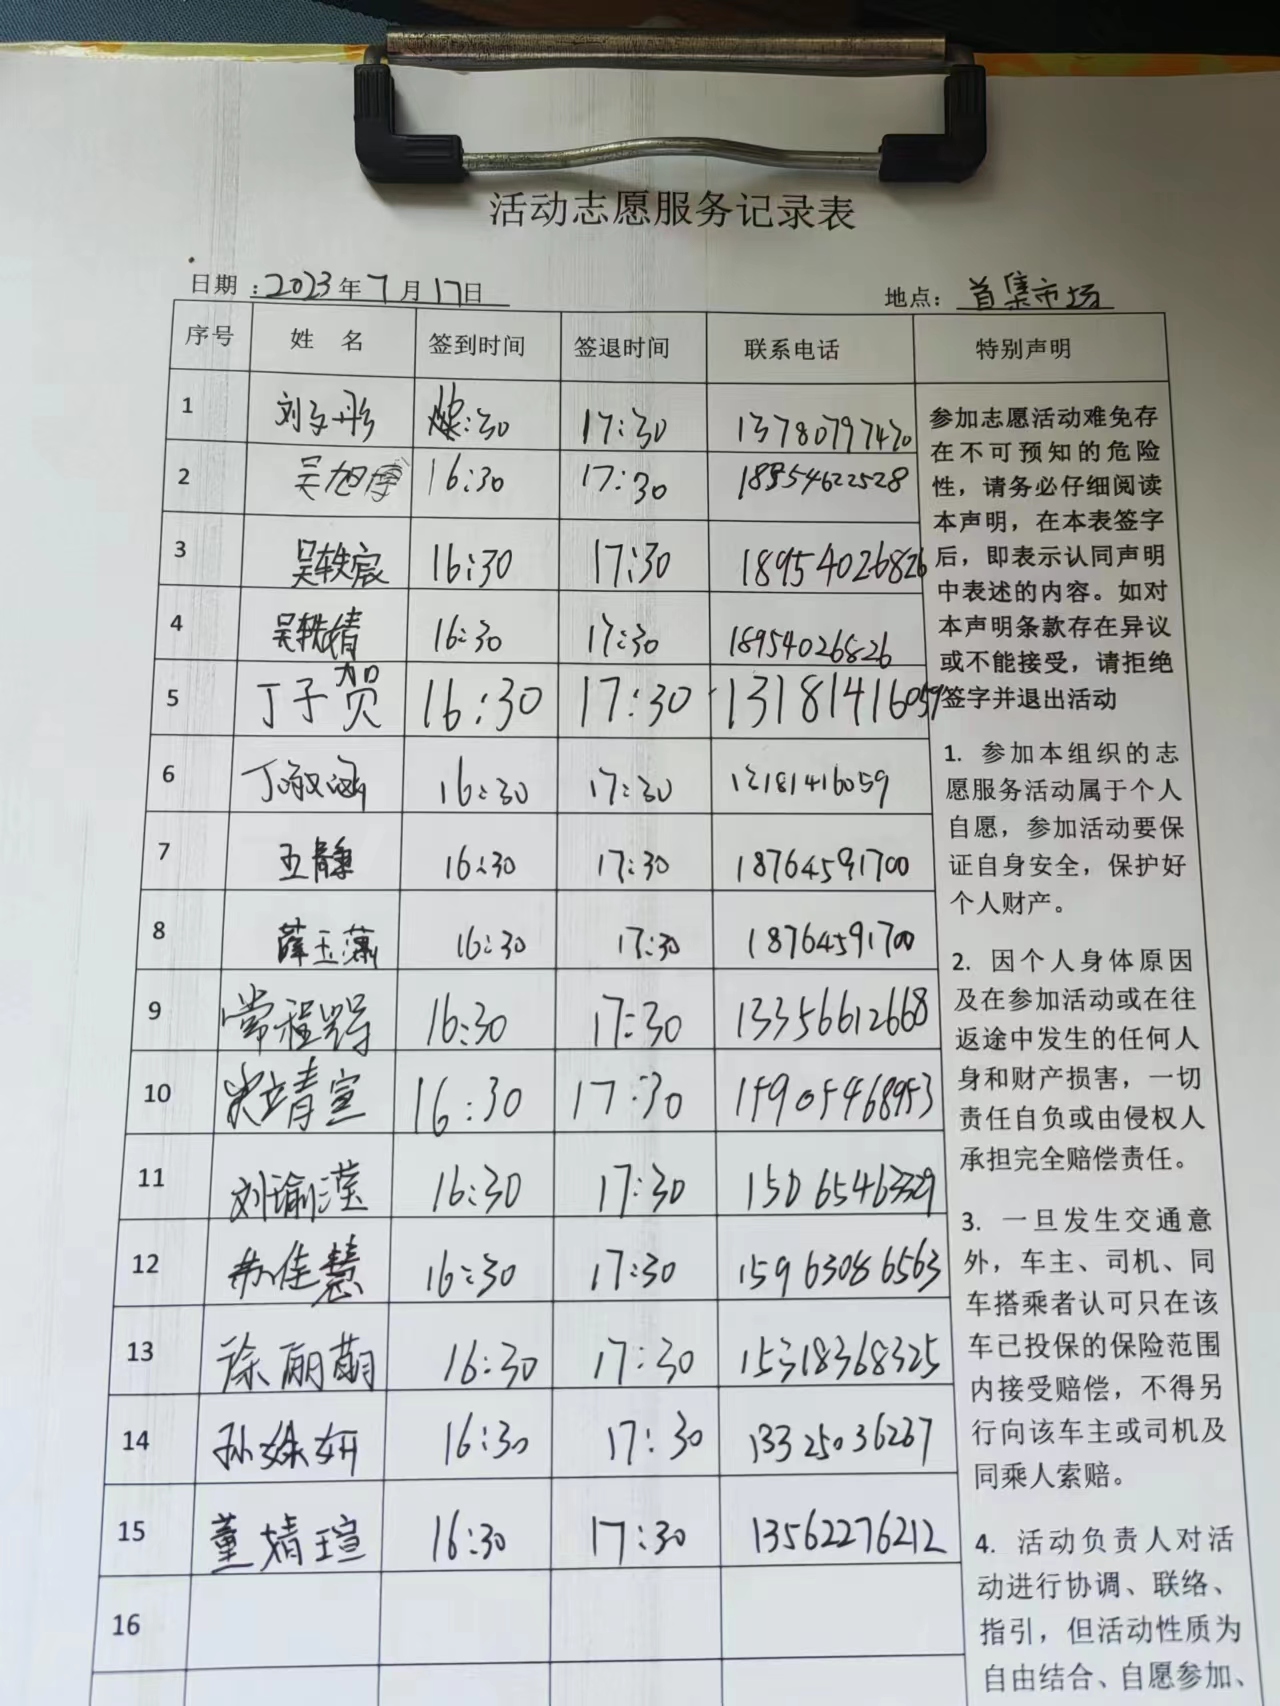 活动志愿服务记录表
日期：2023年7月17日 地点：首集市场
序号 姓 名 签到时间 签退时间 联系电话 特别声明
1 刘 :30 17:30 13780797470
2 吴旭博 16:30 17:30 18954622528
3 吴轶宸 16:30 17:30 18954026826
4 吴轶婧 16:30 17:30 18954026826
5 丁子贺 16:30 17:30 13181416059
6 丁淑涵 16:30 17:30 13181416059
7 王静 16:30 17:30 18764591700
8 薛玉潇 16:30 17:30 18764591700
9 常程 16:30 17:30 13356612668
10 宋婧宣 16:30 17:30 15905468953
11 刘瑜滢 16:30 17:30 15065463329
12 苏佳慧 16:30 17:30 15963086563
13 徐丽萌 16:30 17:30 15318368325
14 孙姝妍 16:30 17:30 13325036267
15 董婧瑄 16:30 17:30 13562276212
16
参加志愿活动难免存
在不可预知的危险
性，请务必仔细阅读
本声明，在本表签字
后，即表示认同声明
中表述的内容。如对
本声明条款存在异议
或不能接受，请拒绝
签字并退出活动
1. 参加本组织的志
愿服务活动属于个人
自愿，参加活动要保
证自身安全，保护好
个人财产。
2. 因个人身体原因
及在参加活动或在往
返途中发生的任何人
身和财产损害，一切
责任自负或由侵权人
承担完全赔偿责任。
3. 一旦发生交通意
外，车主、司机、同
车搭乘者认可只在该
车已投保的保险范围
内接受赔偿，不得另
行向该车主或司机及
同乘人索赔。
4. 活动负责人对活
动进行协调、联络、
指引，但活动性质为
自由结合、自愿参加、